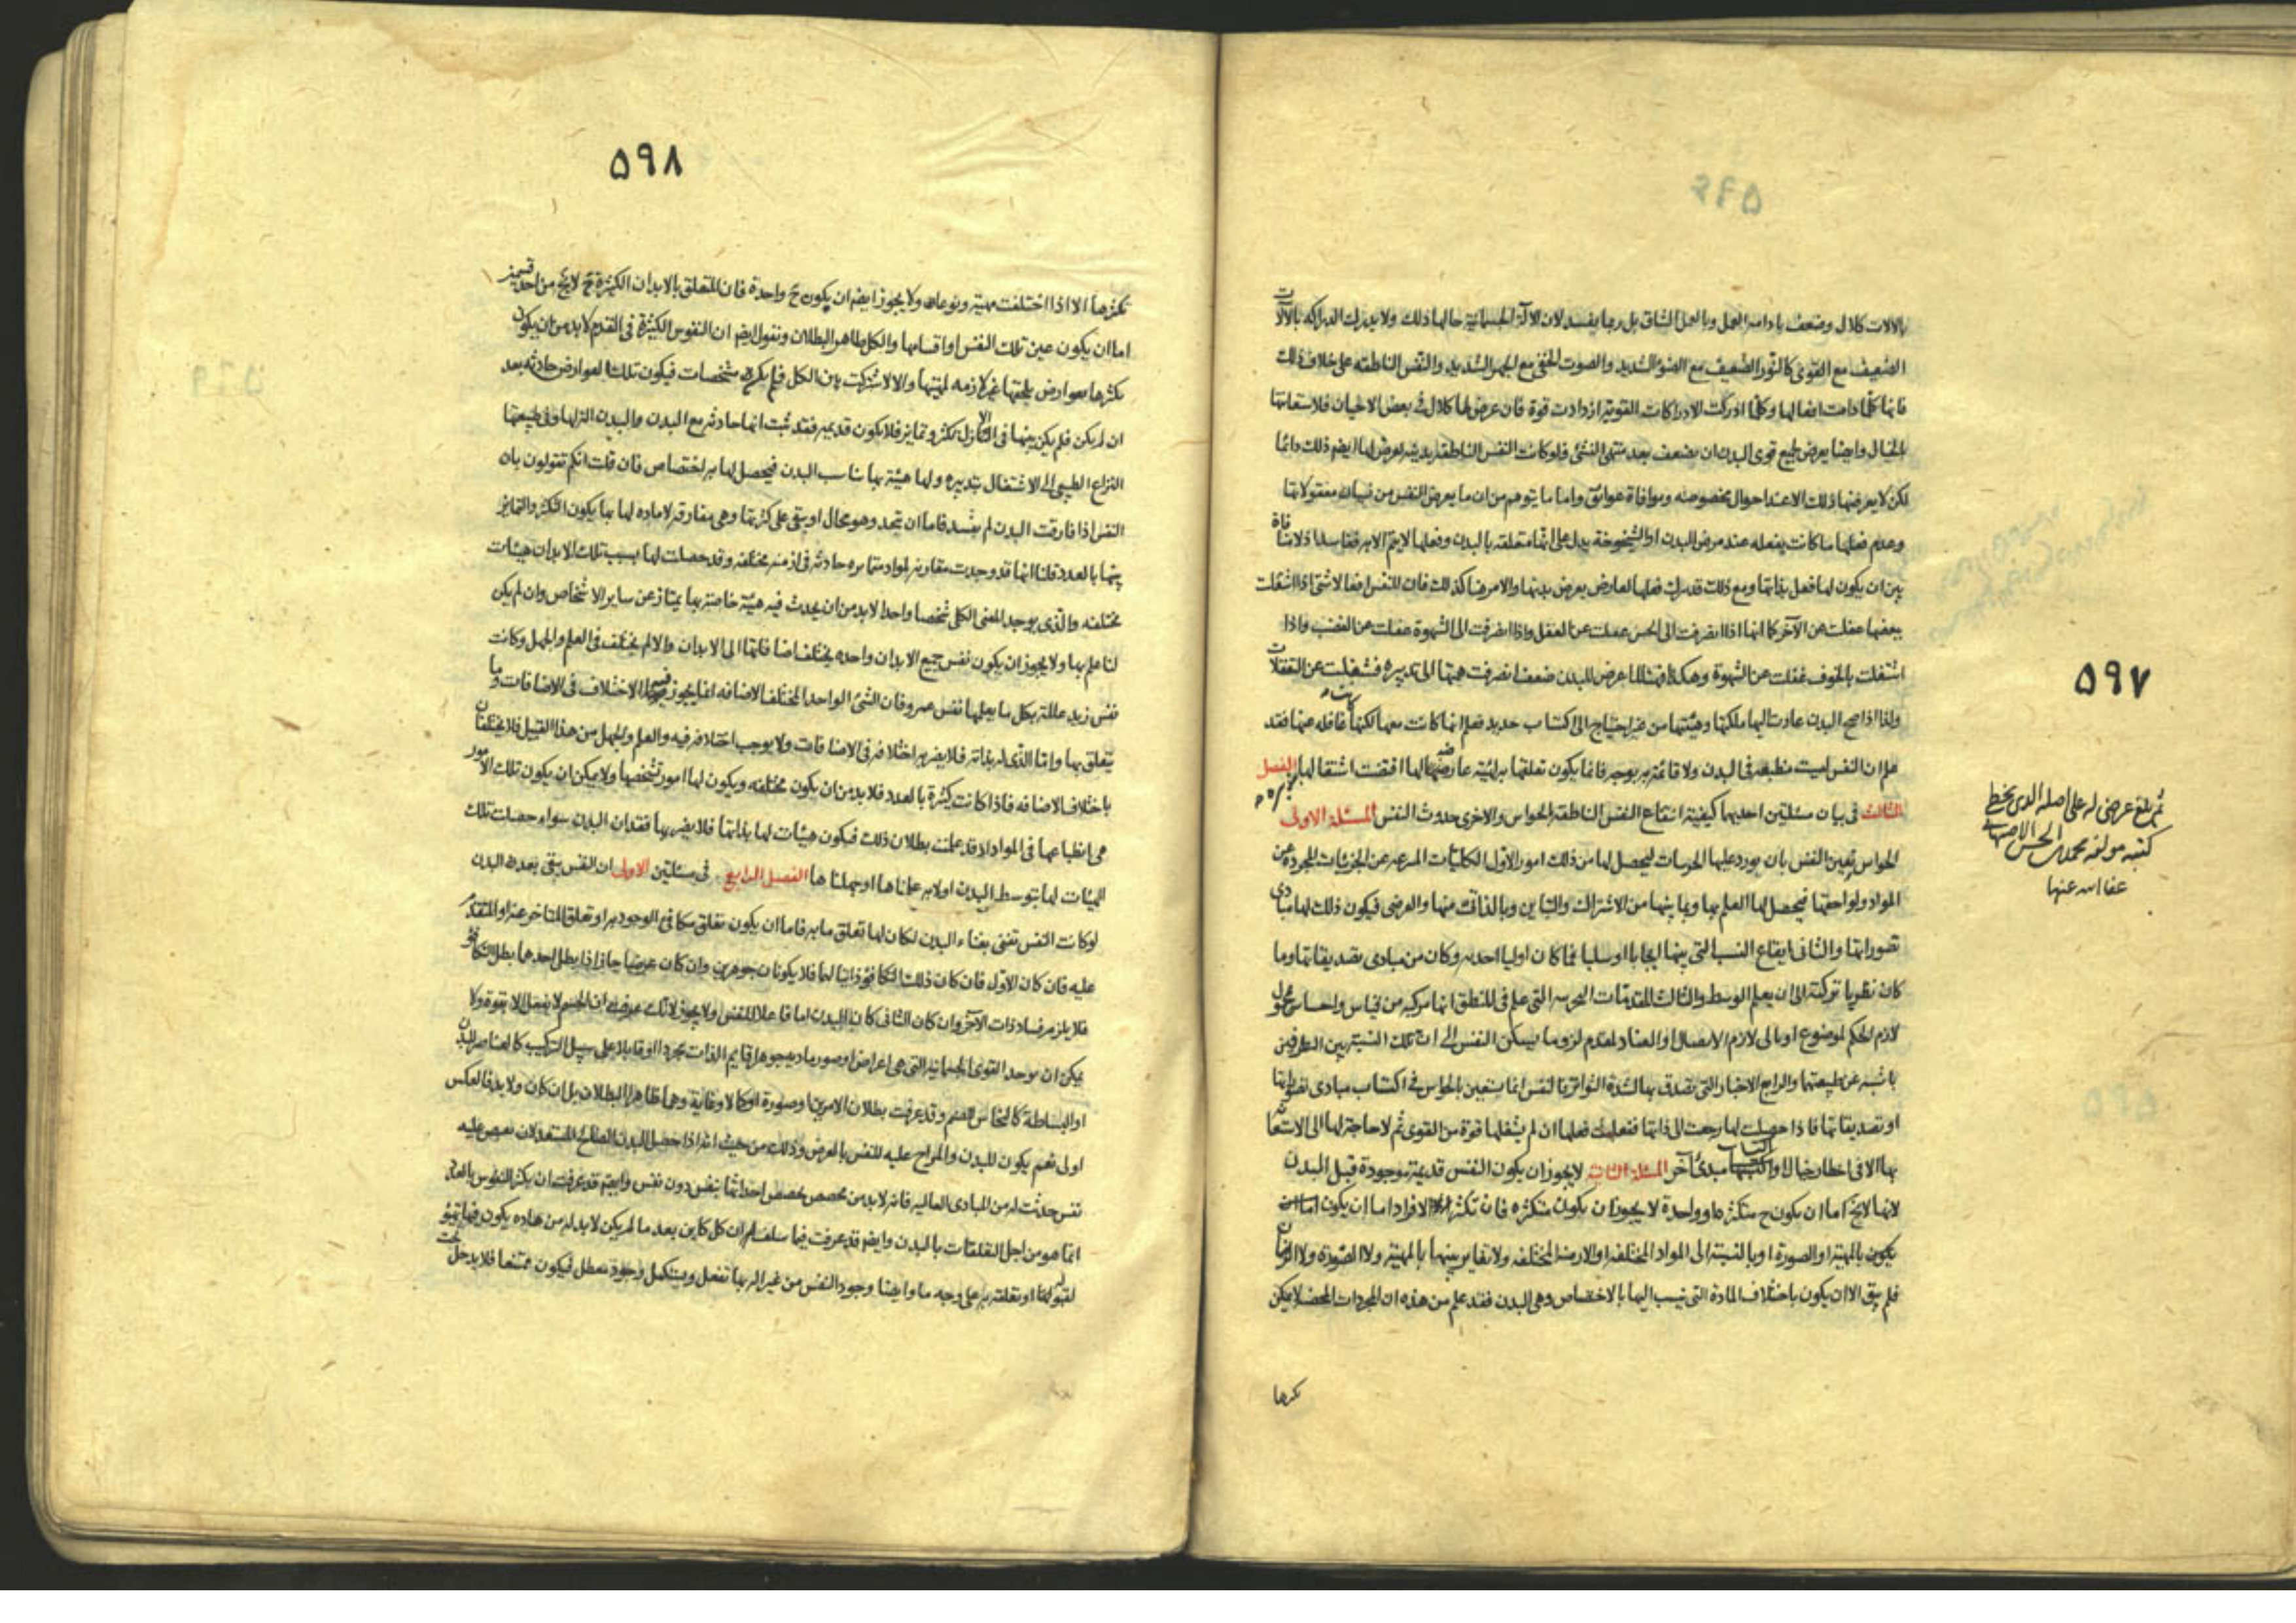 ٥٩٧
بالالات كلال وضعف بادامه العمل وبالعمل الشاق بل ربما يفسد لان الآلة الجسمانية حالها ذلك ولا يدرك المدركه بالآلات
الضعيف مع القوى كالنور الضعيف مع الضوء الشديد والصوت الخفى مع الجهر الشديد والنفس الناطقه على خلاف ذلك
فانها كلما دامت افعالها وكلما ادركت الادراكات القوية ازدادت قوة فان عرض لها كلال فى بعض الاحيان فلاستعانتها
بالخيال وايضا يعرض لجميع قوى البدن ان يضعف بعد منتهى النشئ فلو كانت النفس الناطقة بدنيه لعرض لها ايضم ذلك دائما
لكن لا يعرضها ذلك الا عند احوال مخصوصه وموافاة عوايق واما ما يتوهم من ان ما يعرض النفس من نسيان معقولاتها
وعدم فعلها ما كانت يفعله عند مرض البدن او الشيخوخة يدل على انها متعلقه بالبدن وفعلها لا يتم الا به فقاسد اذ لا منافاة
بين ان يكون لها فعل بذاتها ومع ذلك قد يترك فعلها لعارض يعرض بدنها والامر هنا كذلك فان للنفس افعالا شتى اذا اشتغلت
ببعضها غفلت عن الآخر كما انها اذا انصرفت الى الحس غفلت عن العقل واذا انصرفت الى الشهوة غفلت عن الغضب واذا
اشتغلت بالخوف غفلت عن الشهوة وهكذا فمثلا لما عرض للبدن ضعف انصرفت همتها الى تدبيره فشغلت عن التعقلات
ولذا اذا صح البدن عادت اليها ملكتها وهيئتها من غير احتياج الى اكتساب جديد فعلم انها كانت معها لكنها كانت غافله عنها فقد
علم ان النفس ليست منطبعه فى البدن ولا قائمه به بوجه فانما يكون تعلقها به لهيئة عارضه لها اقتضت اشتغالها به الفصل
الثالث فى بيان مسئلتين احديهما كيفية انتفاع النفس الناطقه بالحواس والاخرى حدوث النفس المسئلة الاولى
الحواس تعين النفس بان يورد عليها الجزئيات ليحصل لها من ذلك امور الاول الكليات المنتزعه عن الجزئيات المجردة عن
المواد ولواحقها فيحصل لها العلم بها وبما بينها من الاشتراك والتباين وبالذاتى منها والعرضى فيكون ذلك لها مبادى
تصوراتها والثانى ايقاع النسب التى بينها ايجابا او سلبا فما كان اوليا اخذته وكان من مبادى تصديقاتها وما
كان نظريا تركته الى ان يعلم الوسط والثالث المقدمات التجربيه التى علم فى المنطق انها مركبه من قياس واحساس محمول
لازم الحكم لموضوع او تالى لازم الاتصال او العناد لمقدم لزوما يسكن النفس الى ان تلك النسبة بين الطرفين
ناشيه عن طبيعتهما والرابع الاخبار التى تصدق بها لشدة التواتر فالنفس انما يستعين بالحواس فى اكتساب مبادى تصوراتها
او تصديقاتها فاذا حصلت لها رجعت الى ذاتها ففعلت فعلها ان لم يشغلها قوة من القوى ثم لا حاجة لها الى الاستعانة
بها الا فى اخطار خيال او اكتساب مبدئ آخر المسئلة الثانية لا يجوز ان يكون النفس قديمة موجودة قبل البدن
لانها لا يخ اما ان يكون ح متكثرة او واحدة لا يجوز ان يكون متكثره فان تكثر الافراد اما ان يكون
يكون بالمهية او الصورة او بالنسبة الى المواد المختلفه او الازمنة المختلفه ولا تغاير بينها بالمهية ولا الصورة ولا الزمان
فلم يبق الا ان يكون باختلاف المادة التى ينسب اليها بالاختصاص وهى البدن فقد علم من هذه ان المجردات المحضه لا يمكن
تكثرها
ثم بلغ عرضى له على اصله الذى بخط
كتبه مولفه محمد بن الحسن الاصبهانى
عفا الله عنهما
٥٩٨
تكثرها الا اذا اختلفت مهيته ونوعا ولا يجوز ايضم ان يكون ح واحدة فان المتعلق بالابدان الكثيرة ح لا يخ من احد قسمين
اما ان يكون عين تلك النفس او اقسامها والكل ظاهر البطلان ونقول ايضم ان النفوس الكثيرة فى القدم لا بد من ان يكون
تكثرها بعوارض يلحقها غير لازمه لمهيتها والا لاشتركت بين الكل فلم يكن مشخصات فيكون تلك العوارض حادثه بعد
ان لم يكن فلم يكن بينها فى الازل تكثر وتمايز فلا يكون قديمه فقد ثبت انها حادثه مع البدن والبدن التها وفى طبيعتها
النزاع الطبيعى الى الاشتغال بتدبيره ولها هيئة بها يناسب البدن فيحصل لها به اختصاص فان قلت انكم تقولون بان
النفس اذا فارقت البدن لم يفسد فاما ان يتحد وهو محال او يبقى على كثرتها وهى مفارقه لا ماده لها بما يكون التكثر والتمايز
بينها بالعدد قلنا انها قد وجدت مقارنه لمواد متمايزه حادثه فى ازمنه مختلفه وقد حصلت لها بسبب تلك الابدان هيئات
مختلفه والذى يوجد المعنى الكلى شخصا واحدا لا بد من ان يحدث فيه هيئة خاصة بها يمتاز عن ساير الاشخاص وان لم يكن
لنا علم بها ولا يجوز ان يكون نفس جميع الابدان واحده يختلف اضافاتها الى الابدان والا لم يختلف فى العلم والجهل وكانت
نفس زيد عالمة بكل ما يعلمها نفس عمرو فان الشئ الواحد المختلف الاضافه انما يجوز فيه الاختلاف فى الاضافات وما
يتعلق بها واما الذى له بذاته فلا يضر به اختلافه فى الاضافات ولا يوجب اختلافه فيه والعلم والجهل من هذا القبيل فلا يختلفان
باختلاف الاضافه فاذا كانت كثيرة بالعدد فلا بد من ان يكون مختلفه ويكون لها امور تشخصها ولا يمكن ان يكون تلك الامور
هى انطباعها فى المواد اذ قد علمت بطلان ذلك فيكون هيئات لها بذاتها فلا يضر بها فقدان البدن سواء حصلت تلك
الهيئات لها بتوسط البدن او لا به علمناها او جهلناها الفصل الرابع فى مسئلتين الاولى ان النفس يبقى بعد البدن
لو كانت النفس تفنى بفناء البدن لكان لها تعلق ما به فاما ان يكون تعلق مكافى الوجود به او تعلق المتاخر عنه او المتقدم
عليه فان كان الاول فان كان ذلك التكافؤ ذاتيا لهما فلا يكونان جوهرين وان كان عرضيا جاز اذا بطل احدهما بطل التكافؤ
فلا يلزم فساد ذات الآخر وان كان الثانى كان البدن اما فاعلا للنفس ولا يجوز لانك عرفت ان الجسم لا يفعل الا بقوة ولا
يمكن ان يوجد القوى الجسمانيه التى هى اعراض او صور ماديه جوهرا قايم الذات مجردا او قابلا على سبيل التركيب كالعناصر للبدن
او البساطة كالنحاس للصنم وقد عرفت بطلان الامرين او صورة او كمالا وغاية وهما ظاهرا البطلان بل ان كان ولا بد فالعكس
اولى نعم يكون للبدن والمزاج عليه للنفس بالعرض وذلك من حيث انه اذا حصل البدن الصالح المستعد لان يفيض عليه
نفس حدثت له من المبادى العاليه فانه لا بد من مخصص يخصص احداثها بنفس دون نفس وايضم قد عرفت ان تكثر النفوس بالعدد
انما هو من اجل التعلقات بالبدن وايضم قد عرفت فيما سلف ان كل كاين بعد ما لم يكن لا بد له من ماده يكون فيها تهيؤ
لقبوله او تعلقه به على وجه ما وايضا وجود النفس من غير اله بها تفعل ويستكمل وجود معطل فيكون ممتنعا فلا يدخل تحت